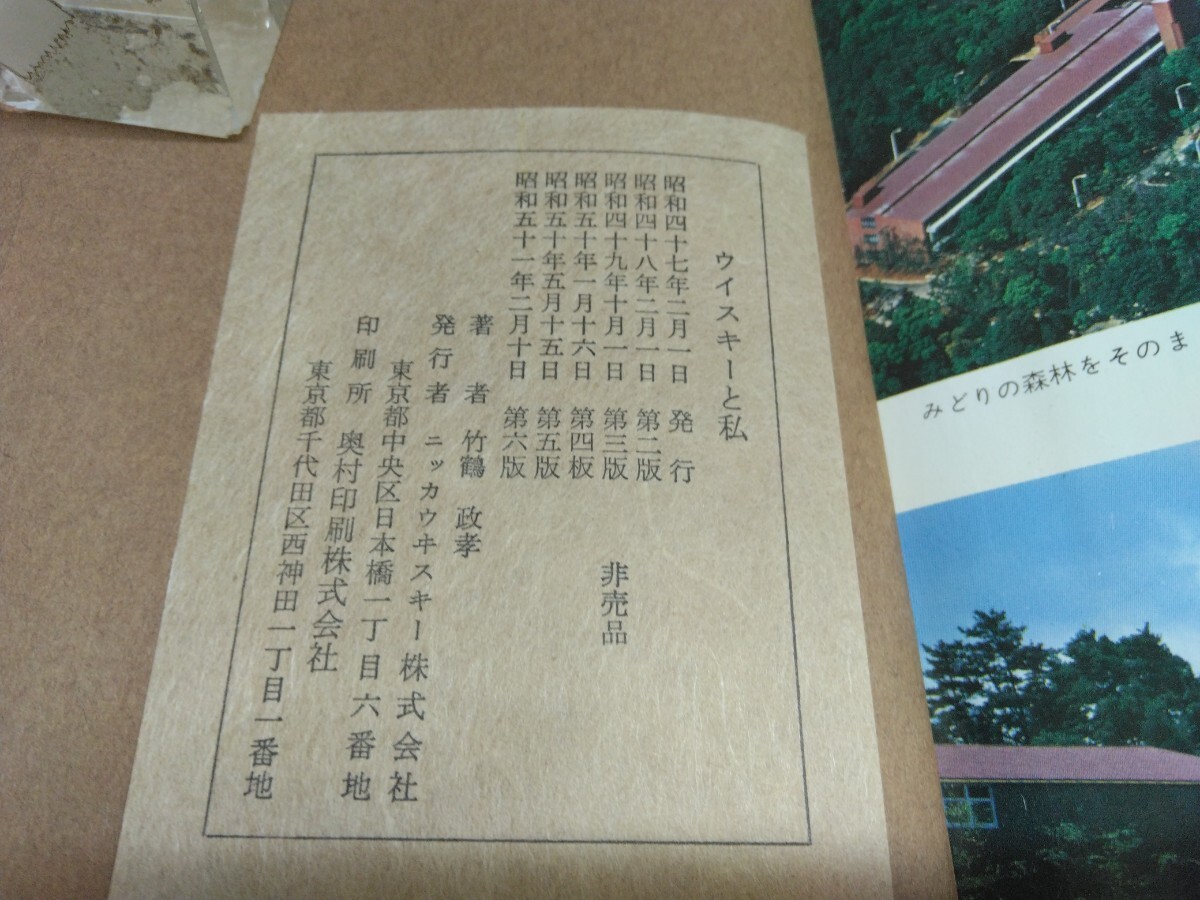 ウイスキーと私
昭和四十七年二月一日 発行
昭和四十八年二月一日 第二版
昭和四十九年十月一日 第三版
昭和五十年一月十六日 第四板
昭和五十年五月十五日 第五版
昭和五十一年二月十日 第六版
非売品
著者 竹鶴 政孝
発行者 ニッカウヰスキー株式会社
東京都中央区日本橋一丁目六番地
印刷所 奥村印刷株式会社
東京都千代田区西神田一丁目一番地
みどりの森林をそのま